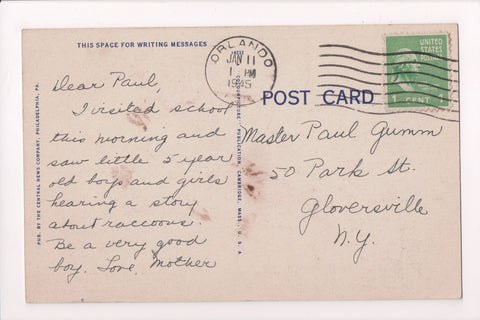 THIS SPACE FOR WRITING MESSAGES
Dear Paul,
I visited school
this morning and
saw little 5 year
old boys and girls
hearing a story
about raccoons.
Be a very good
boy. Love, Mother
PUB. BY THE CENTRAL NEWS COMPANY, PHILADELPHIA, PA.
PUBLICATION, CAMBRIDGE, MASS., U. S. A.
ORLANDO
JAN 11
1 PM
1945
UNITED
STATES
POSTAGE
1 CENT 1
POST CARD
Master Paul Gumm
50 Park St.
Gloversville
N.Y.